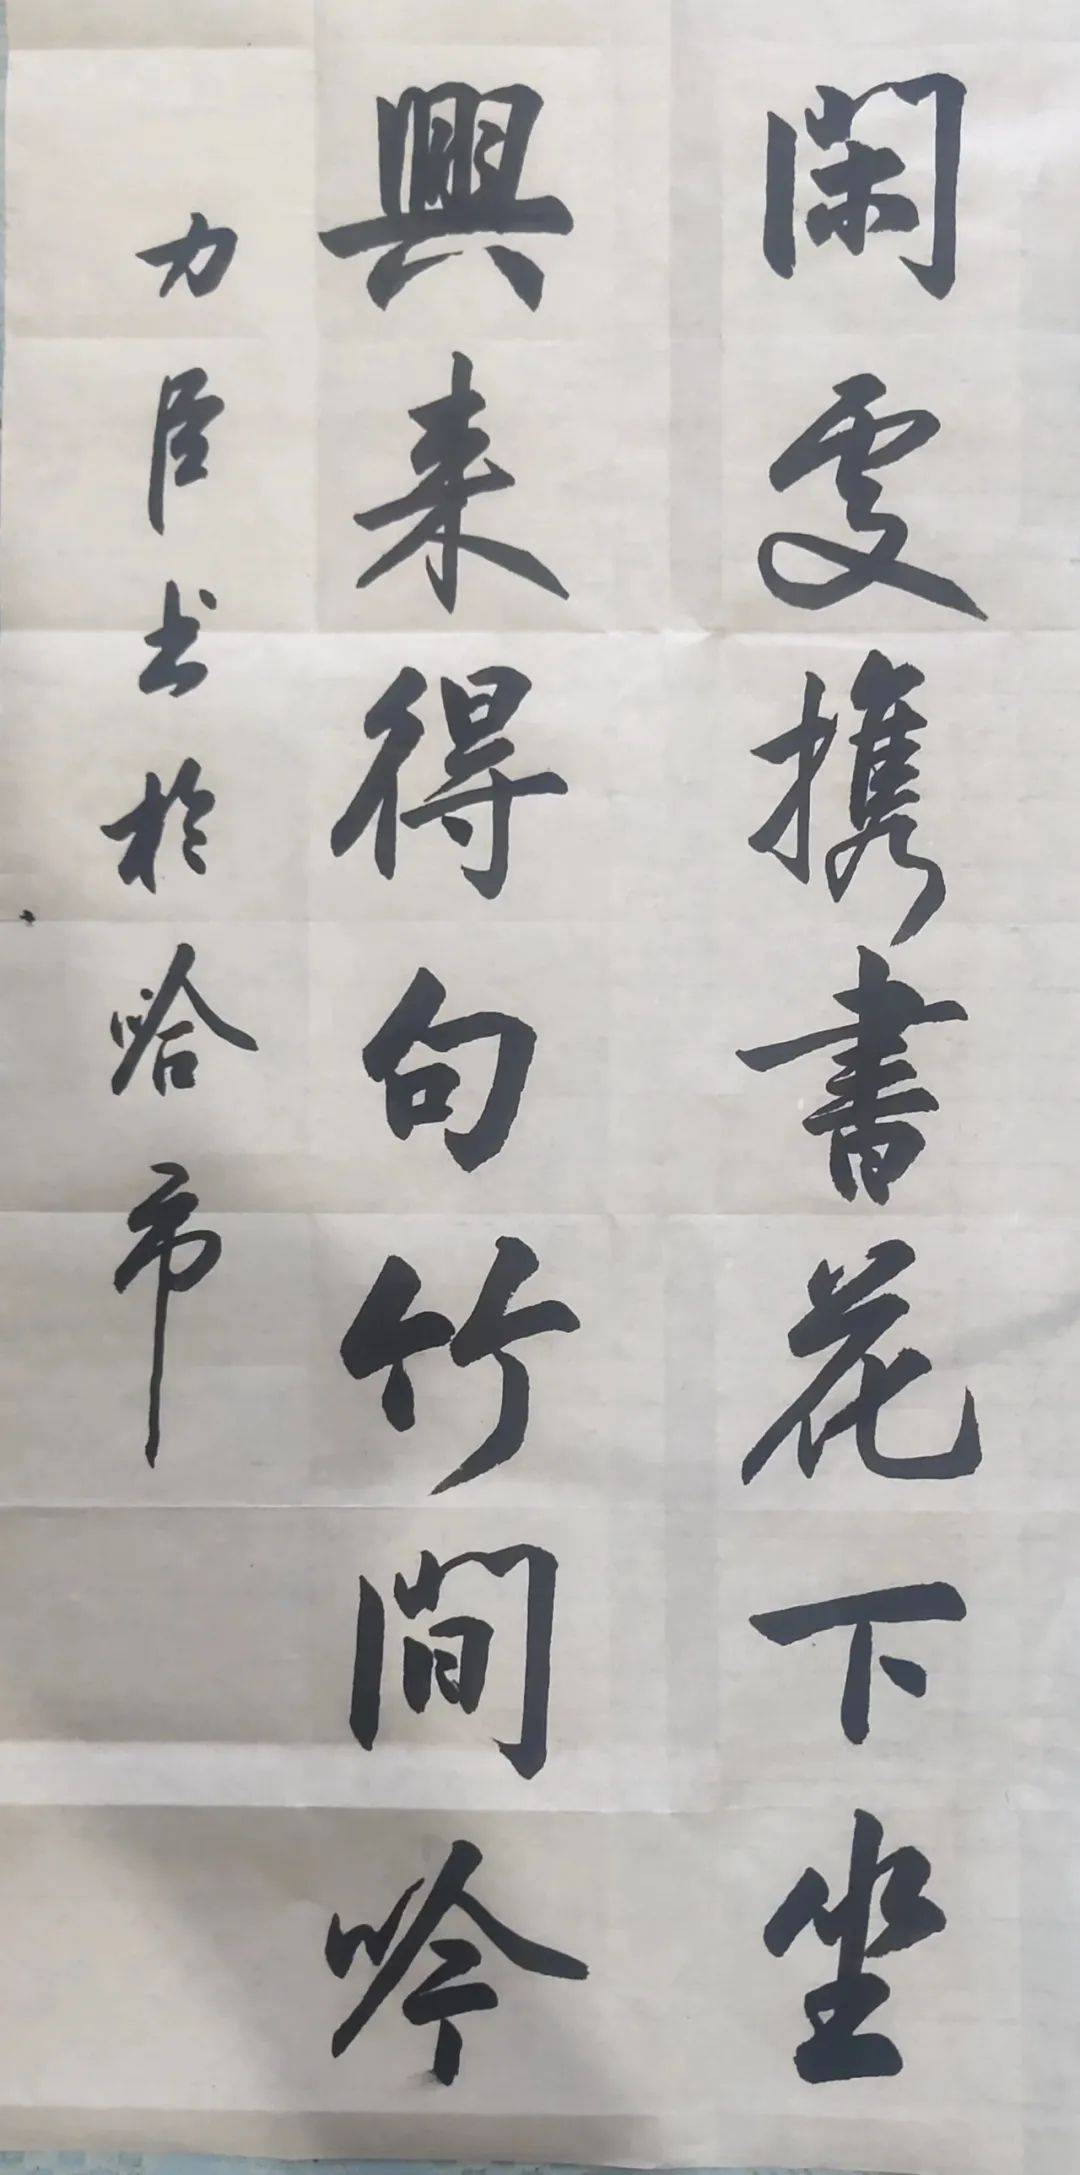 閑處攜書花下坐
興来得句竹間吟
力臣书於哈市